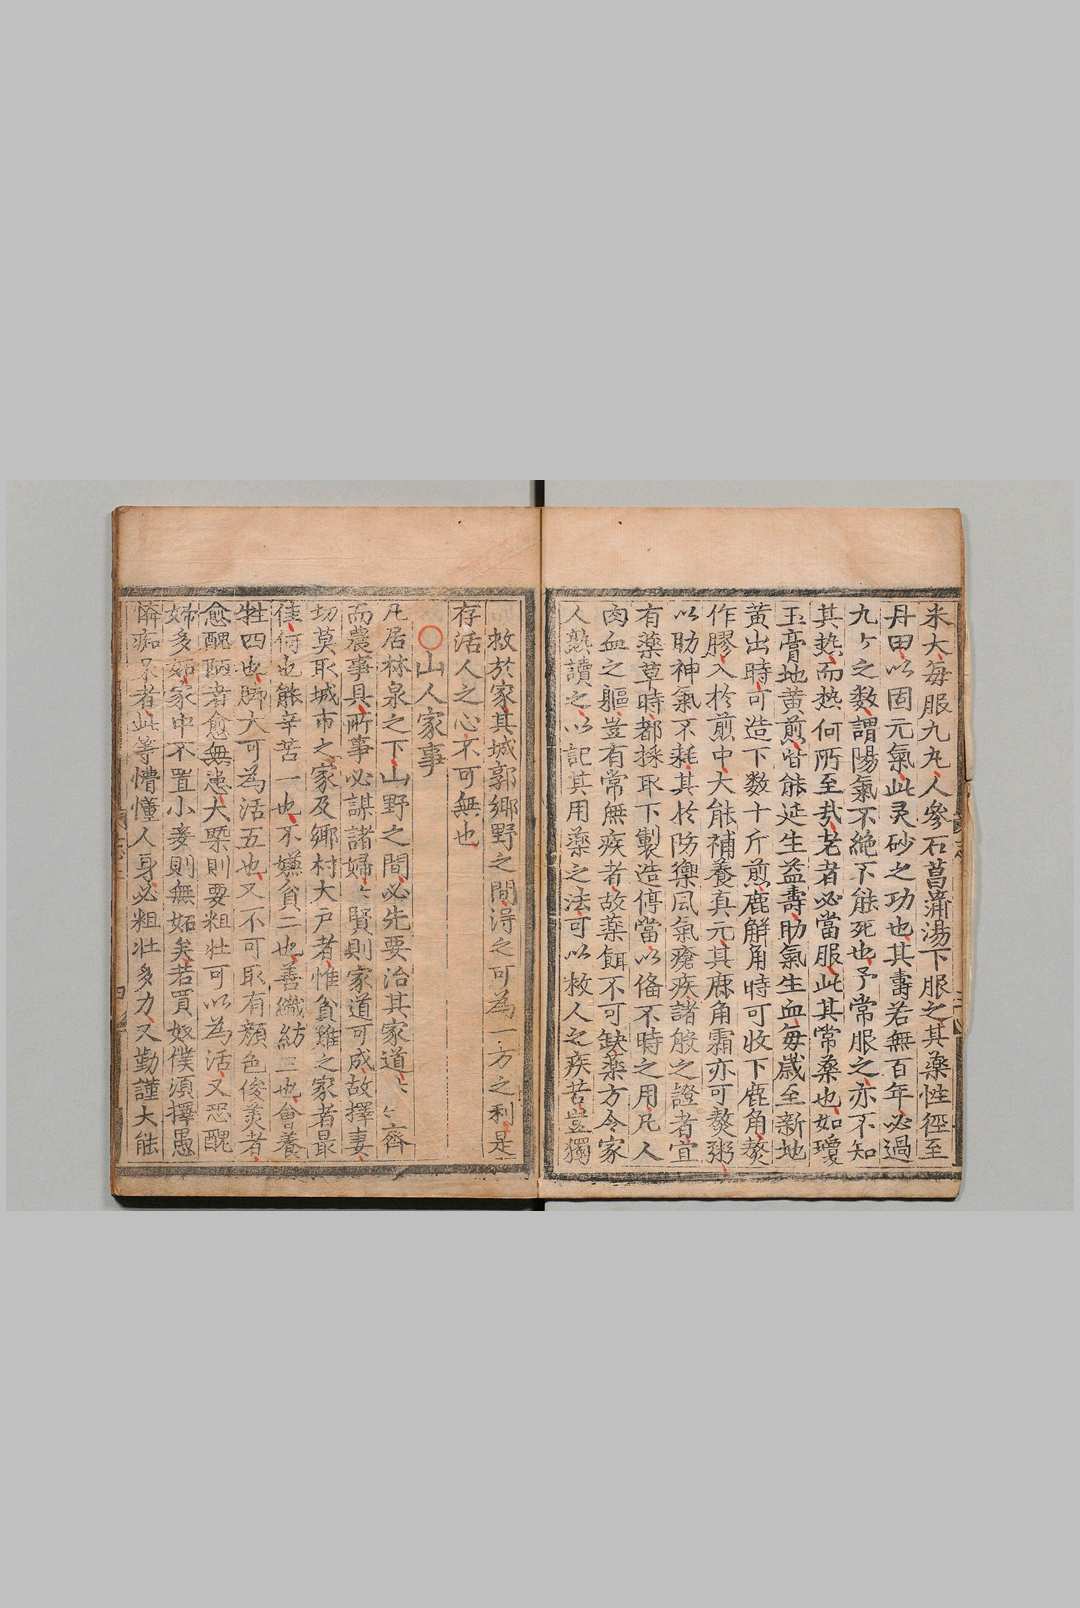 米大每服九丸人參石菖蒲湯下服之其藥性徑至
丹田以固元氣此灵砂之功也其壽若無百年必過
九ケ之数謂陽氣不絶不能死也予常服之亦不知
其熱而热何所至㢤老者必當服此其常桑也如瓊
玉膏地黄煎皆能延生益壽助氣生血每歲至新地
黄出時可造下数十斤煎鹿解角時可收下鹿角熬
作膠入於煎中大能補養真元其鹿角霜亦可熬粥
以助神氣不耗其於防禦风氣瘡疾諸般之證者宜
有藥草時都採取下製造停當以俻不時之用凡人
肉血之軀豈有常無疾者故藥餌不可缺藥方令家
人熟讀之以記其用藥之法可以救人之疾苦豈獨
救於家其城郭鄉野之間得之可為一方之利是
存活人之心不可無也
○山人家事
凡居林泉之下山野之間必先要治其家道〻〻齊
而農事具所事必謀諸婦〻賢則家道可成故擇妻
切莫取城市之家及鄉村大戸者惟貧難之家者最
佳何也能辛苦一也不嫌貧二也善織紡三也會養
牲四也脚大可為活五也又不可取有顔色俊美者
愈醜陋者愈無患大槩則要粗壮可以為活又恐醜
婦多妬家中不置小妾則無妬矣若買奴僕須擇愚
憐痴呆者此等懵懂人身必粗壮多力又勤謹大能